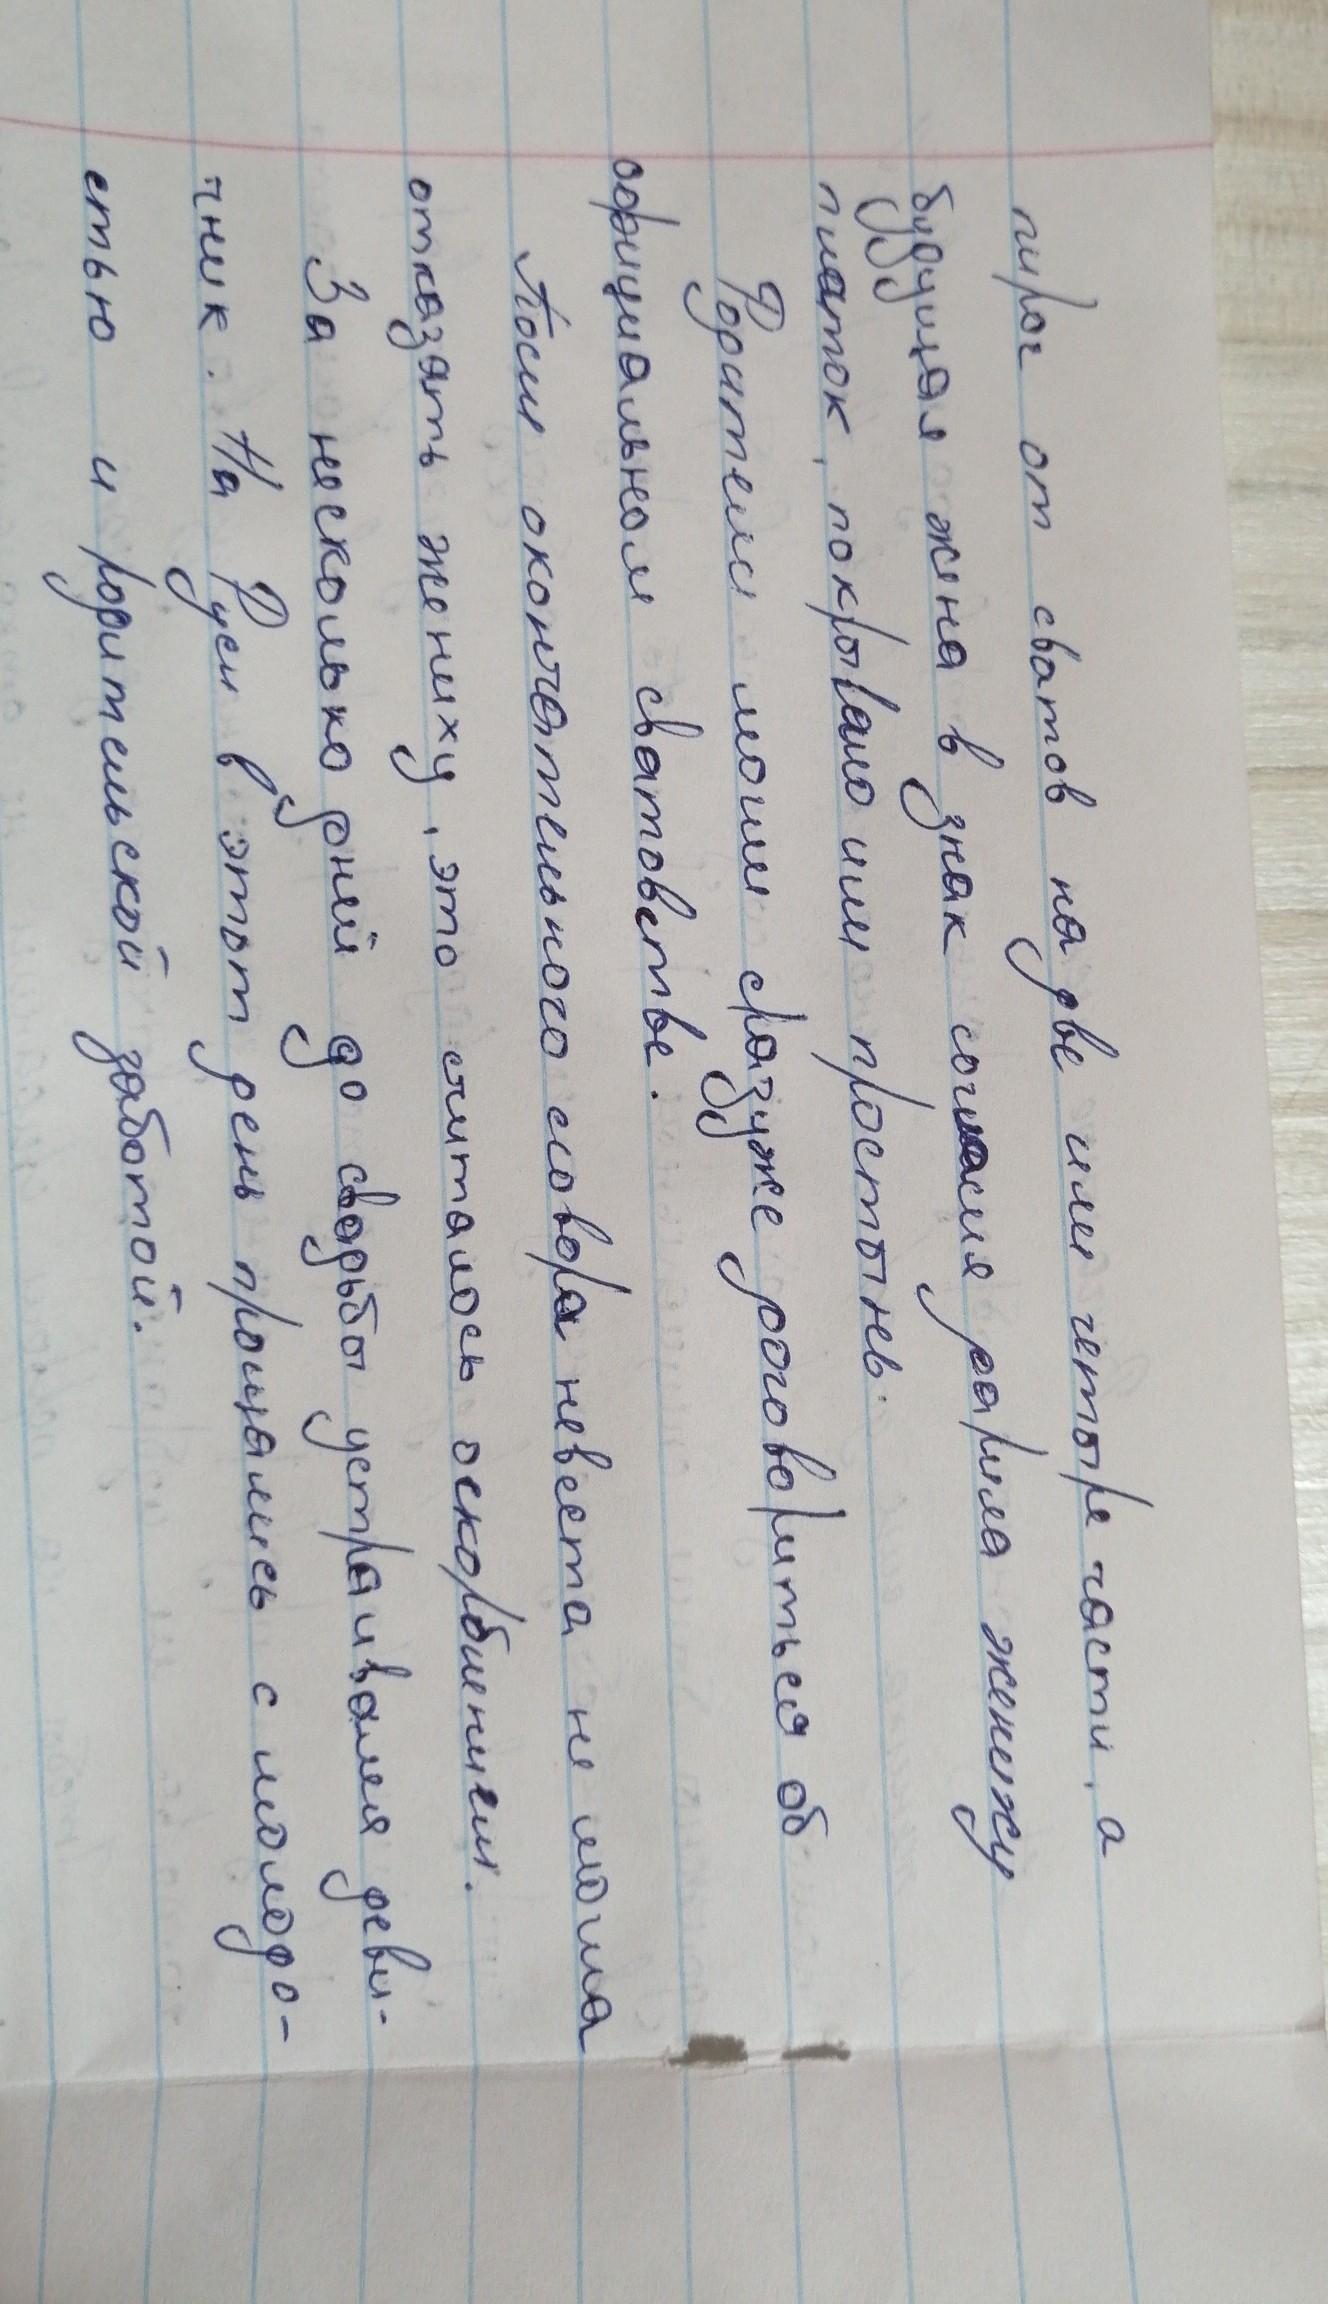 пирог от сватов на две или четыре части, а
будущая жена в знак согласия дарила жениху
платок, покрывало или простынь.
Родители могли сразу же договориться об
официальном сватовстве.
После окончательного сговора невеста не могла
отказать жениху, это считалось оскорблением.
За несколько дней до свадьбы устраивался деви-
чник. На Руси в этот день прощались с молодо-
стью и родительской заботой.